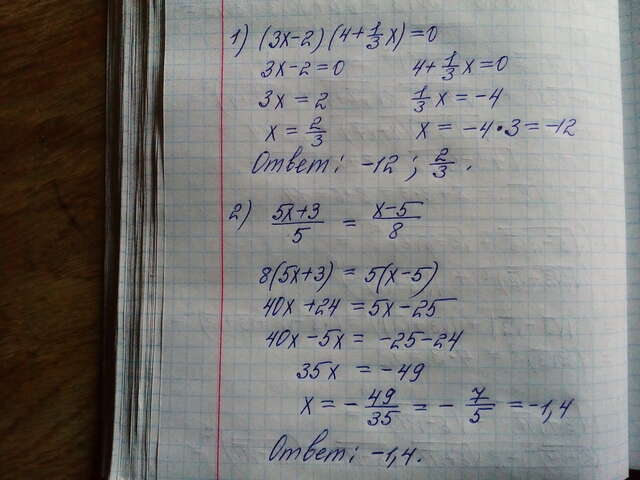 1) (3x-2)(4+1/3x)=0
3x-2=0 4+1/3x=0
3x=2 1/3x=-4
x=2/3 x=-4•3=-12
Ответ: -12; 2/3.
2) (5x+3)/5 = (x-5)/8
8(5x+3)=5(x-5)
40x+24=5x-25
40x-5x=-25-24
35x=-49
x=-49/35=-7/5=-1,4
Ответ: -1,4.